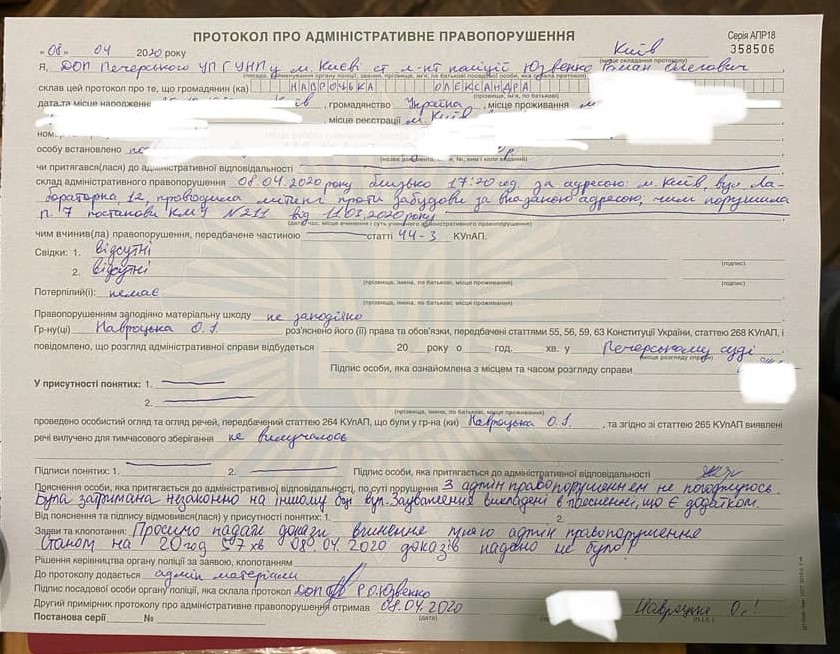 ПРОТОКОЛ ПРО АДМІНІСТРАТИВНЕ ПРАВОПОРУШЕННЯ
Серія АПР18
358506
"08" 04 2020 року Київ
(місце складання протоколу)
Я, ДОП Печерського УП ГУНП у м. Києві ст л-нт поліції Юзвенко Роман Олегович
склав цей протокол про те, що громадянин (ка) НАВРОЦЬКА ОЛЕКСАНДРА
(прізвище, ім'я, по батькові)
дата та місце народження , громадянство Україна , місце проживання м.
, місце реєстрації м. Київ
особу встановлено
чи притягався(лася) до адміністративної відповідальності
склад адміністративного правопорушення 08.04.2020 року близько 17:20 год за адресою: м. Київ, вул. Ла-
бораторна, 12, проводила мітинг проти забудови за вказаною адресою, чим порушила
п. 7 постанови КМУ №211 від 11.03.2020 року
(дата, час, місце вчинення і суть адміністративного правопорушення)
чим вчинив(ла) правопорушення, передбачене частиною статті 44-3 КУпАП.
Свідки: 1. відсутні
(підпис)
2. відсутні
(прізвища, імена, по батькові, місце проживання) (підпис)
Потерпілий(і): немає
(прізвища, імена, по батькові, місце проживання)
Правопорушенням заподіяно матеріальну шкоду не заподіяно
Гр-ну(ці) Навроцька О. І. роз'яснено його (її) права та обов'язки, передбачені статтями 55, 56, 59, 63 Конституції України, статтею 268 КУпАП, і
повідомлено, що розгляд адміністративної справи відбудеться 20 року о год. хв. у Печерському суді
(місце розгляду справи)
Підпис особи, яка ознайомлена з місцем та часом розгляду справи
У присутності понятих: 1.
2.
(прізвища, імена, по батькові, місце проживання)
проведено особистий огляд та огляд речей, передбачений статтею 264 КУпАП, що були у гр-на (ки) Навроцька О. І. , та згідно зі статтею 265 КУпАП виявлені
речі вилучено для тимчасового зберігання не вилучалось
Підписи понятих: 1. 2. Підпис особи, яка притягається до адміністративної відповідальності
Пояснення особи, яка притягається до адміністративної відповідальності, по суті порушення З адмін правопорушенням не погоджуюсь.
Була затримана незаконно на іншому боці вул. Зауваження викладені в поясненні, що є додатком.
Від пояснення та підпису відмовився(лась) у присутності понятих: 1. 2.
Заяви та клопотання: Просимо надати докази вчинення мною адмін правопорушення
Станом на 20 год 57 хв 08.04.2020 доказів надано не було!
Рішення керівництва органу поліції за заявою, клопотанням
До протоколу додається адмін матеріали
Підпис посадової особи органу поліції, яка склала протокол ДОП Р.О. Юзвенко
Другий примірник протоколу про адміністративне правопорушення отримав 08.04.2020 Навроцька О. І.
(дата) (П.І.Б.)
Постанова серії №